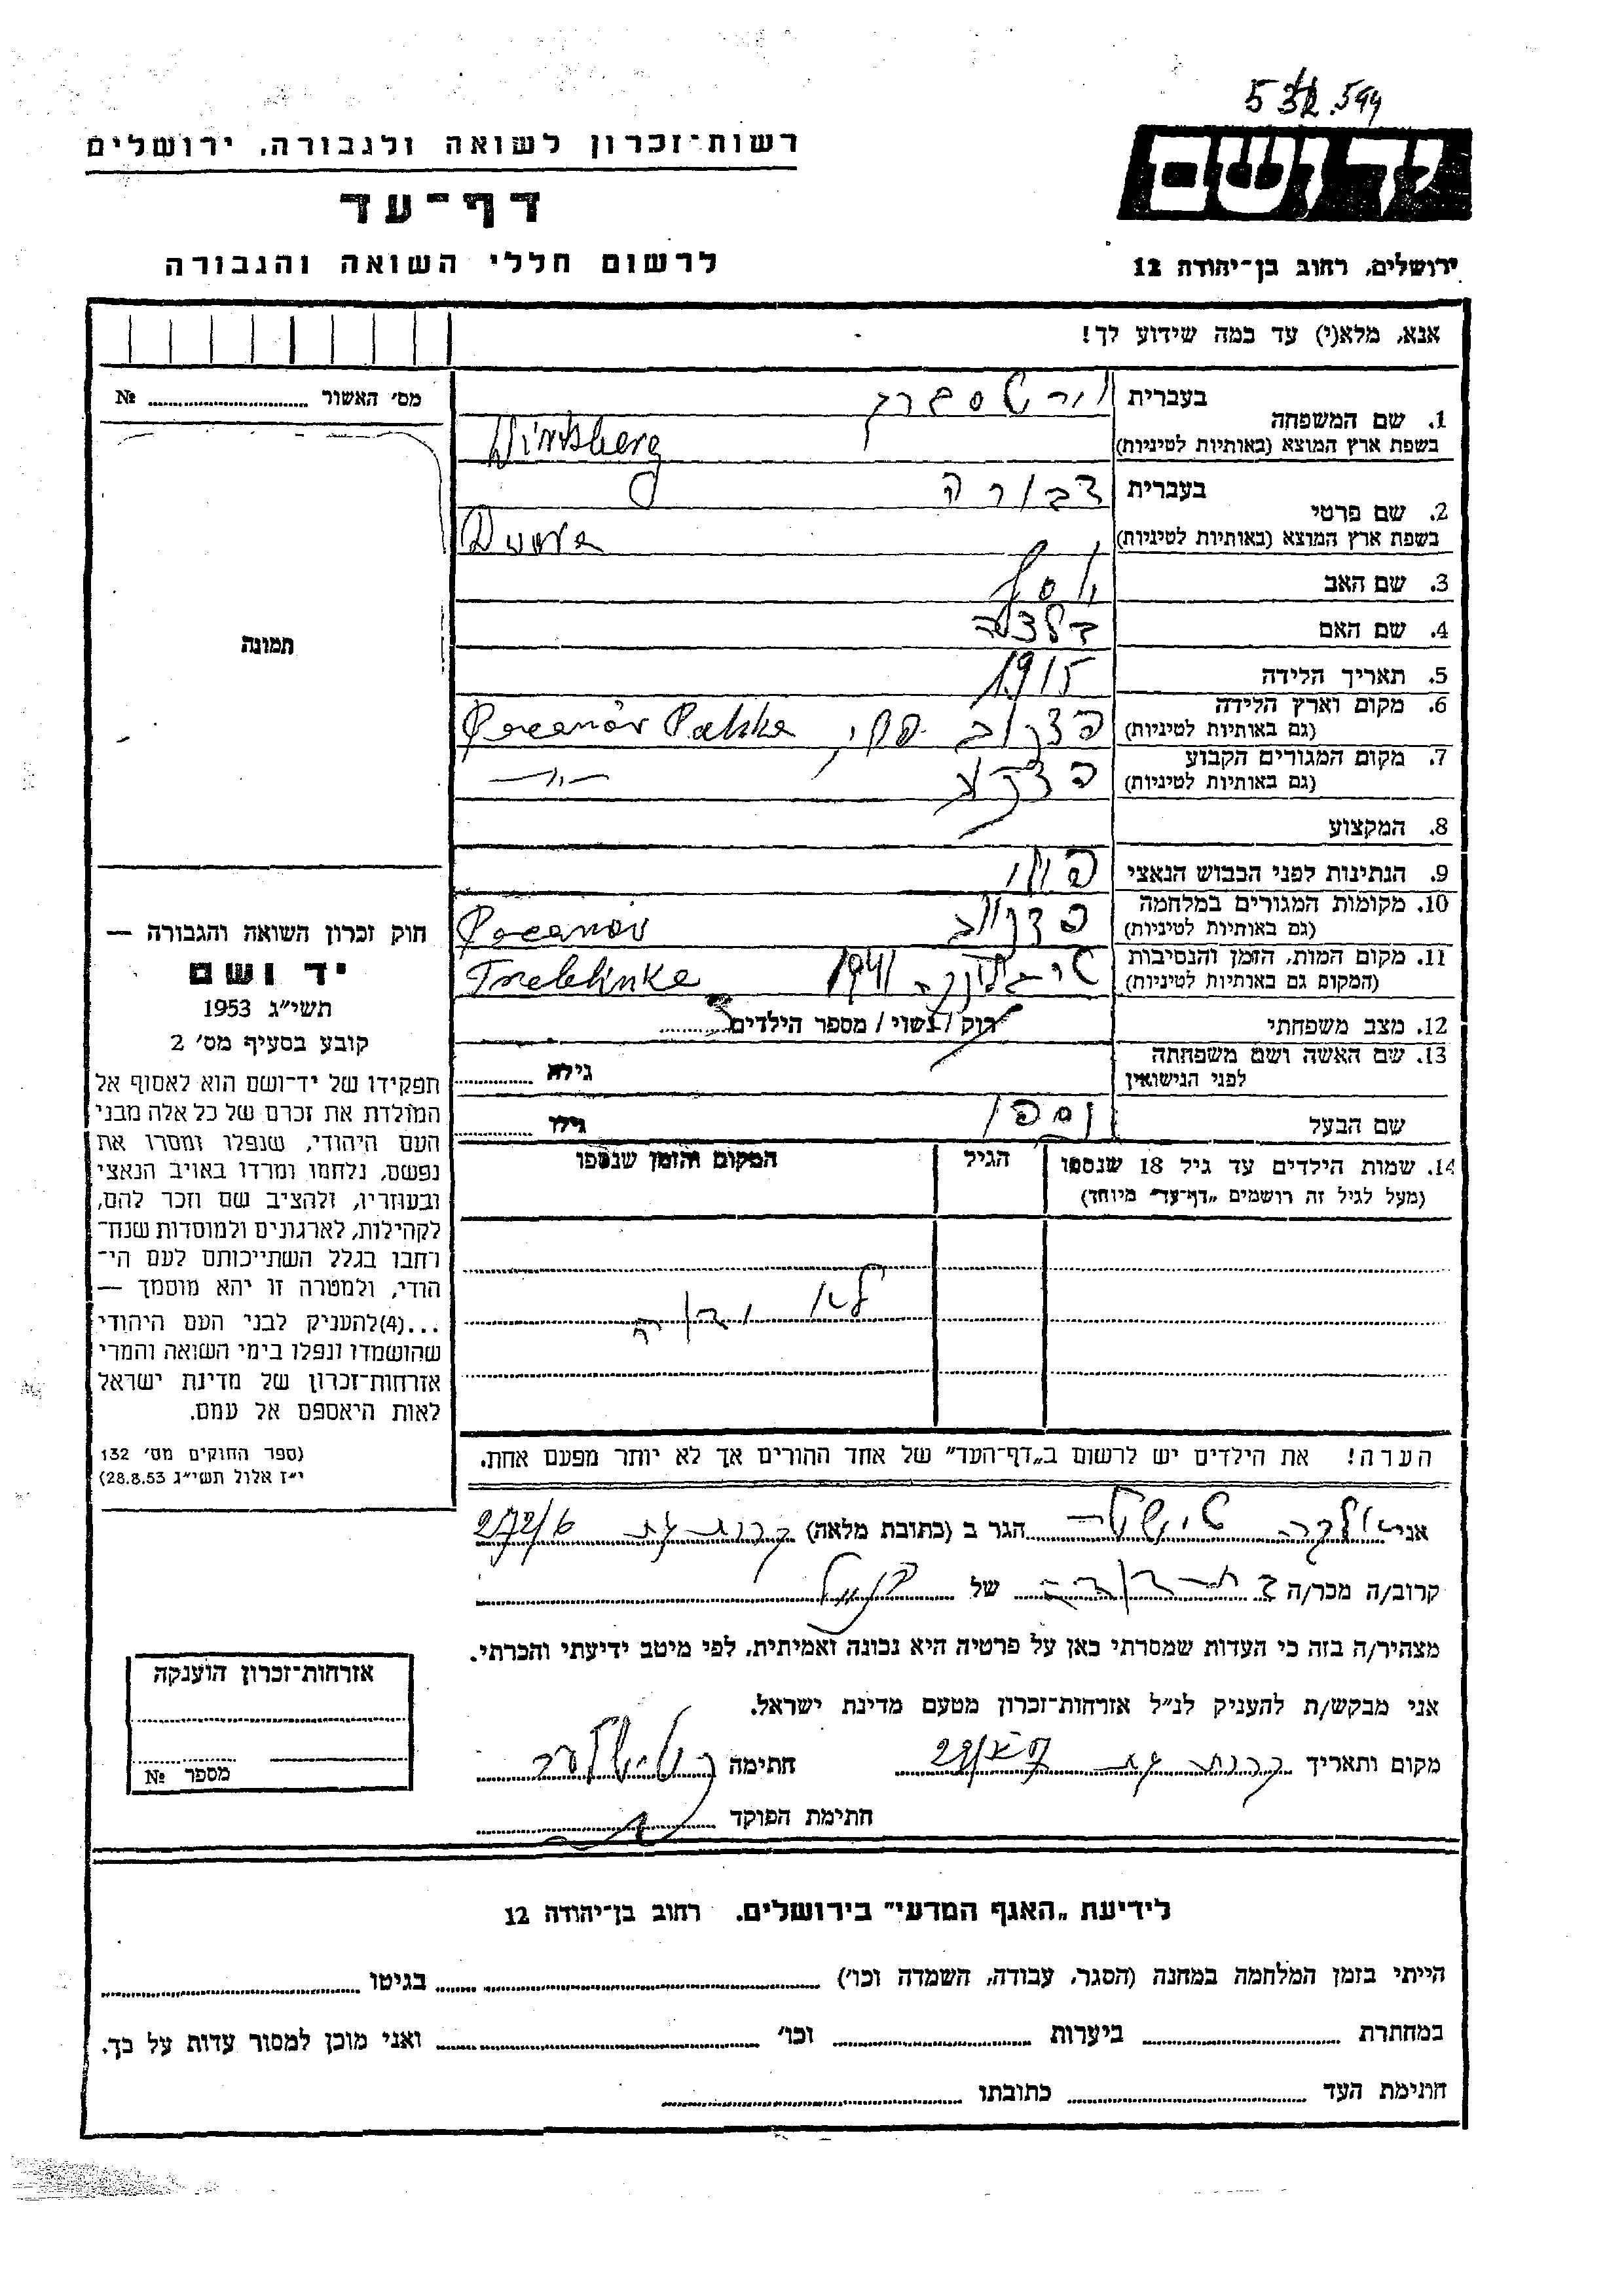 532.594
רשות־זכרון לשואה ולגבורה, ירושלים
יד ושם
דף־עד
לרשום חללי השואה והגבורה
ירושלים, רחוב בן־יהודה 12
אנא, מלא(י) עד כמה שידוע לך!
מס׳ האשור № 
1. שם המשפחה
בעברית
בשפת ארץ המוצא (באותיות לטיניות) Wirtsberg
2. שם פרטי
בעברית דבורה
בשפת ארץ המוצא (באותיות לטיניות) Dwora
3. שם האב יוסף
4. שם האם
תמונה
5. תאריך הלידה 1915
6. מקום וארץ הלידה
(גם באותיות לטיניות) Pacanów Polska
7. מקום המגורים הקבוע
(גם באותיות לטיניות) —״—
8. המקצוע
9. הנתינות לפני הכבוש הנאצי
10. מקומות המגורים במלחמה
(גם באותיות לטיניות) Pacanów
11. מקום המות, הזמן והנסיבות
(המקום גם באותיות לטיניות) טרבלינקה 1941 Treblinka
12. מצב משפחתי רוק / נשוי / מספר הילדים
13. שם האשה ושם משפחתה
לפני הנישואין גילה
שם הבעל גילו
14. שמות הילדים עד גיל 18 שנספו
(מעל לגיל זה רושמים „דף־עד״ מיוחד)
הגיל
המקום והזמן שנספו
לא ידוע
הערה! את הילדים יש לרשום ב„דף־העד״ של אחד ההורים אך לא יותר מפעם אחת.
חוק זכרון השואה והגבורה —
יד ושם
תשי״ג 1953
קובע בסעיף מס׳ 2
תפקידו של יד־ושם הוא לאסוף אל
המולדת את זכרם של כל אלה מבני
העם היהודי, שנפלו ומסרו את
נפשם, נלחמו ומרדו באויב הנאצי
ובעוזריו, ולהציב שם וזכר להם,
לקהילות, לארגונים ולמוסדות שנח־
רחבו בגלל השתייכותם לעם הי־
הודי, ולמטרה זו יהא מוסמך —
...(4)להעניק לבני העם היהודי
שהושמדו ונפלו בימי השואה והמרי
אזרחות־זכרון של מדינת ישראל
לאות היאספם אל עמם.
(ספר החוקים מס׳ 132
י״ז אלול תשי״ג 28.8.53)
אני הגר ב (כתובת מלאה) קרית גת 272/6
קרוב/ה מכר/ה של
מצהיר/ה בזה כי העדות שמסרתי כאן על פרטיה היא נכונה ואמיתית, לפי מיטב ידיעתי והכרתי.
אני מבקש/ת להעניק לנ״ל אזרחות־זכרון מטעם מדינת ישראל.
מקום ותאריך קרית גת חתימה
חתימת הפוקד
אזרחות־זכרון הוענקה
מספר №
לידיעת „האגף המדעי״ בירושלים. רחוב בן־יהודה 12
הייתי בזמן המלחמה במחנה (הסגר, עבודה, השמדה וכו׳) בגיטו
במחתרת ביערות וכו׳ ואני מוכן למסור עדות על כך.
חתימת העד כתובתו